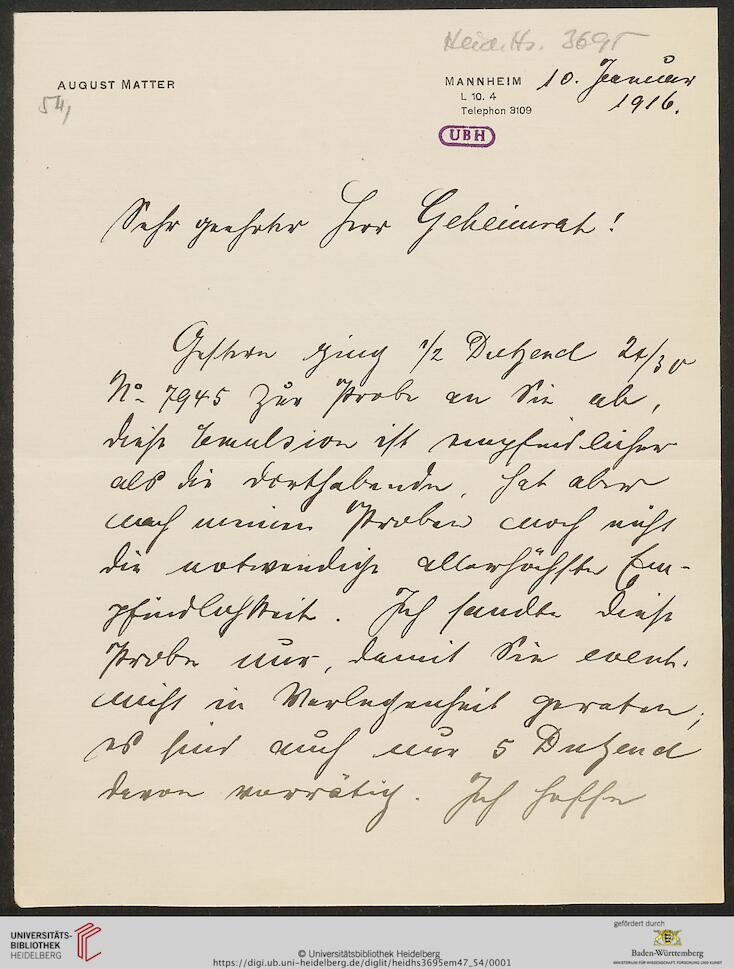 Heid. Hs. 3695
AUGUST MATTER
54,
MANNHEIM 10. Januar
L 10. 4 1916.
Telephon 3109
UBH
Sehr geehrter Herr Geheimrat!
Gestern ging 1/2 Dutzend 24/30
No 7945 zur Probe an Sie ab,
diese Emulsion ist empfindlicher
als die dorthabende, hat aber
nach meinen Proben noch nicht
die notwendige allerhöchste Em-
pfindlichkeit. Ich sandte diese
Probe nur, damit Sie event.
nicht in Verlegenheit geraten;
es sind auch nur 5 Dutzend
davon vorrätig. Ich hoffe
UNIVERSITÄTS-
BIBLIOTHEK
HEIDELBERG
© Universitätsbibliothek Heidelberg
https://digi.ub.uni-heidelberg.de/diglit/heidhs3695em47_54/0001
gefördert durch
Baden-Württemberg
MINISTERIUM FÜR WISSENSCHAFT, FORSCHUNG UND KUNST